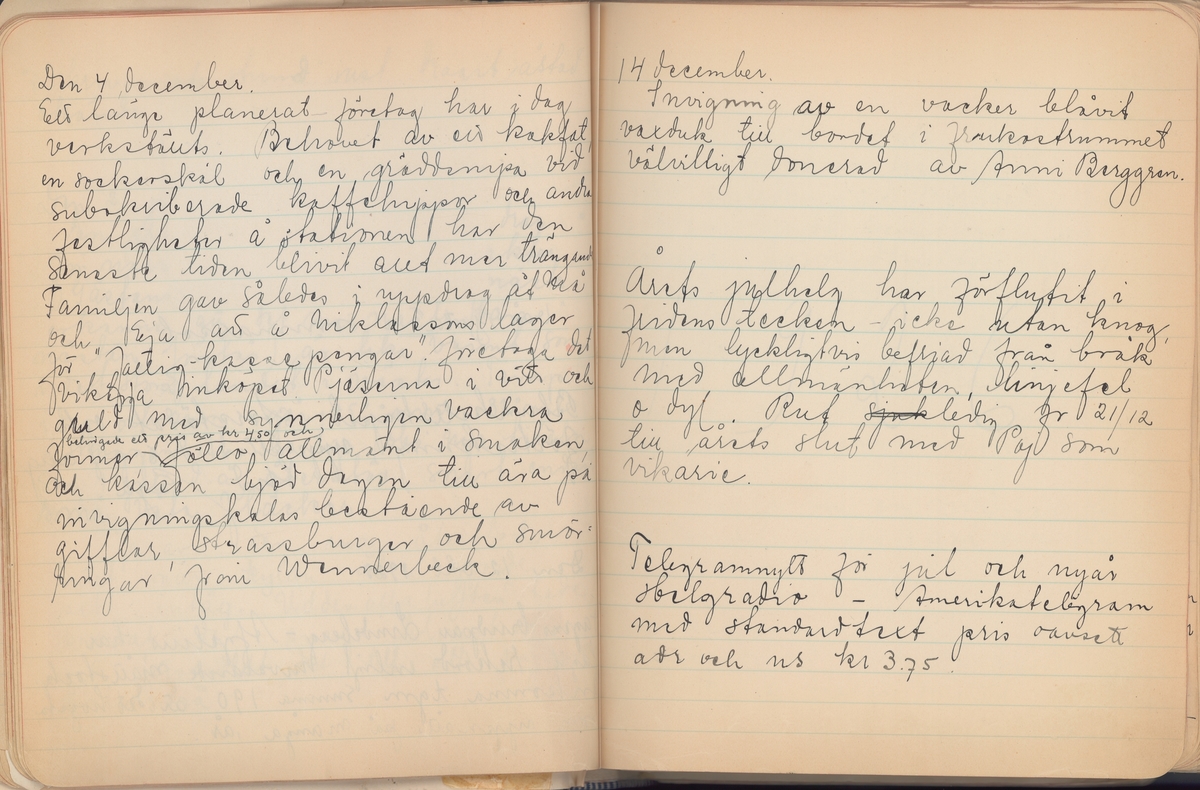 Den 4 december.
Ett länge planerat företag har i dag
verkställts. Behovet av ett kakfat,
en sockerskål och en gräddsnipa vid
subskriberade kaffehippor och andra
festligheter å stationen har den
senaste tiden blivit allt mer trängande
Familjen gav således i uppdrag åt
och Eja att å Niklassons lager
för "Jallig-kassapengar" företaga det
viktiga inköpet. Pjäserna i vitt och
guld med synnerligen vackra
betingade ett pris av kr 4.50 och
former föllo allmänt i smaken,
och kassan bjöd dagen till ära på
invigningskalas bestående av
gifflar, strassburger och smör-
kringlor från Wennerbeck.
14 december.
Invigning av en vacker blåvit
vaxduk till bordet i frukostrummet
välvilligt donerad av Anni Berggren.
Årets julhelg har förflutit i
fridens tecken – icke utan knog,
men lyckligtvis befriad från bråk
med allmänheten, linjefel
o dyl. Rut sjuk ledig fr 21/12
till årets slut med Paj som
vikarie.
Telegramnytt för jul och nyår
Helgradio – Amerikatelegram
med standardtext pris oavsett
adr och us kr 3.75.